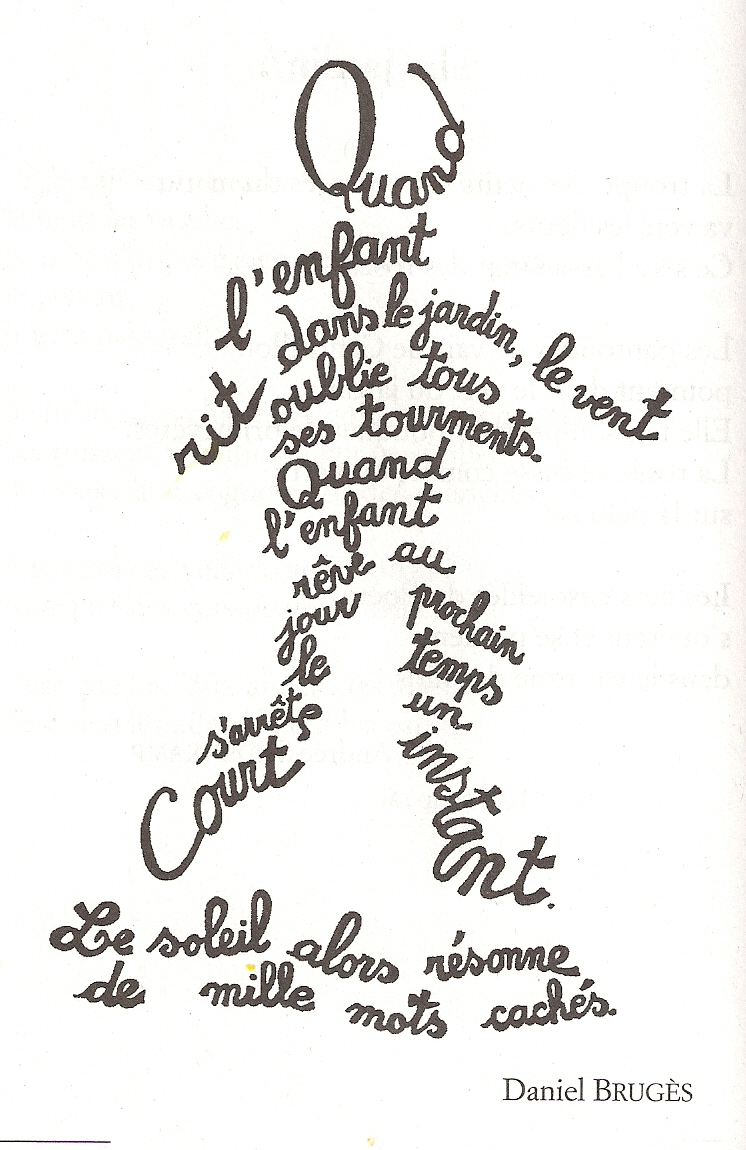 Quand
l'enfant
rit
dans le jardin, le vent
oublie tous
ses tourments.
Quand
l'enfant
rêve au
prochain
jour
le
temps
un
instant.
s'arrête
Court
Le soleil alors résonne
de mille mots cachés.
Daniel BRUGÈS